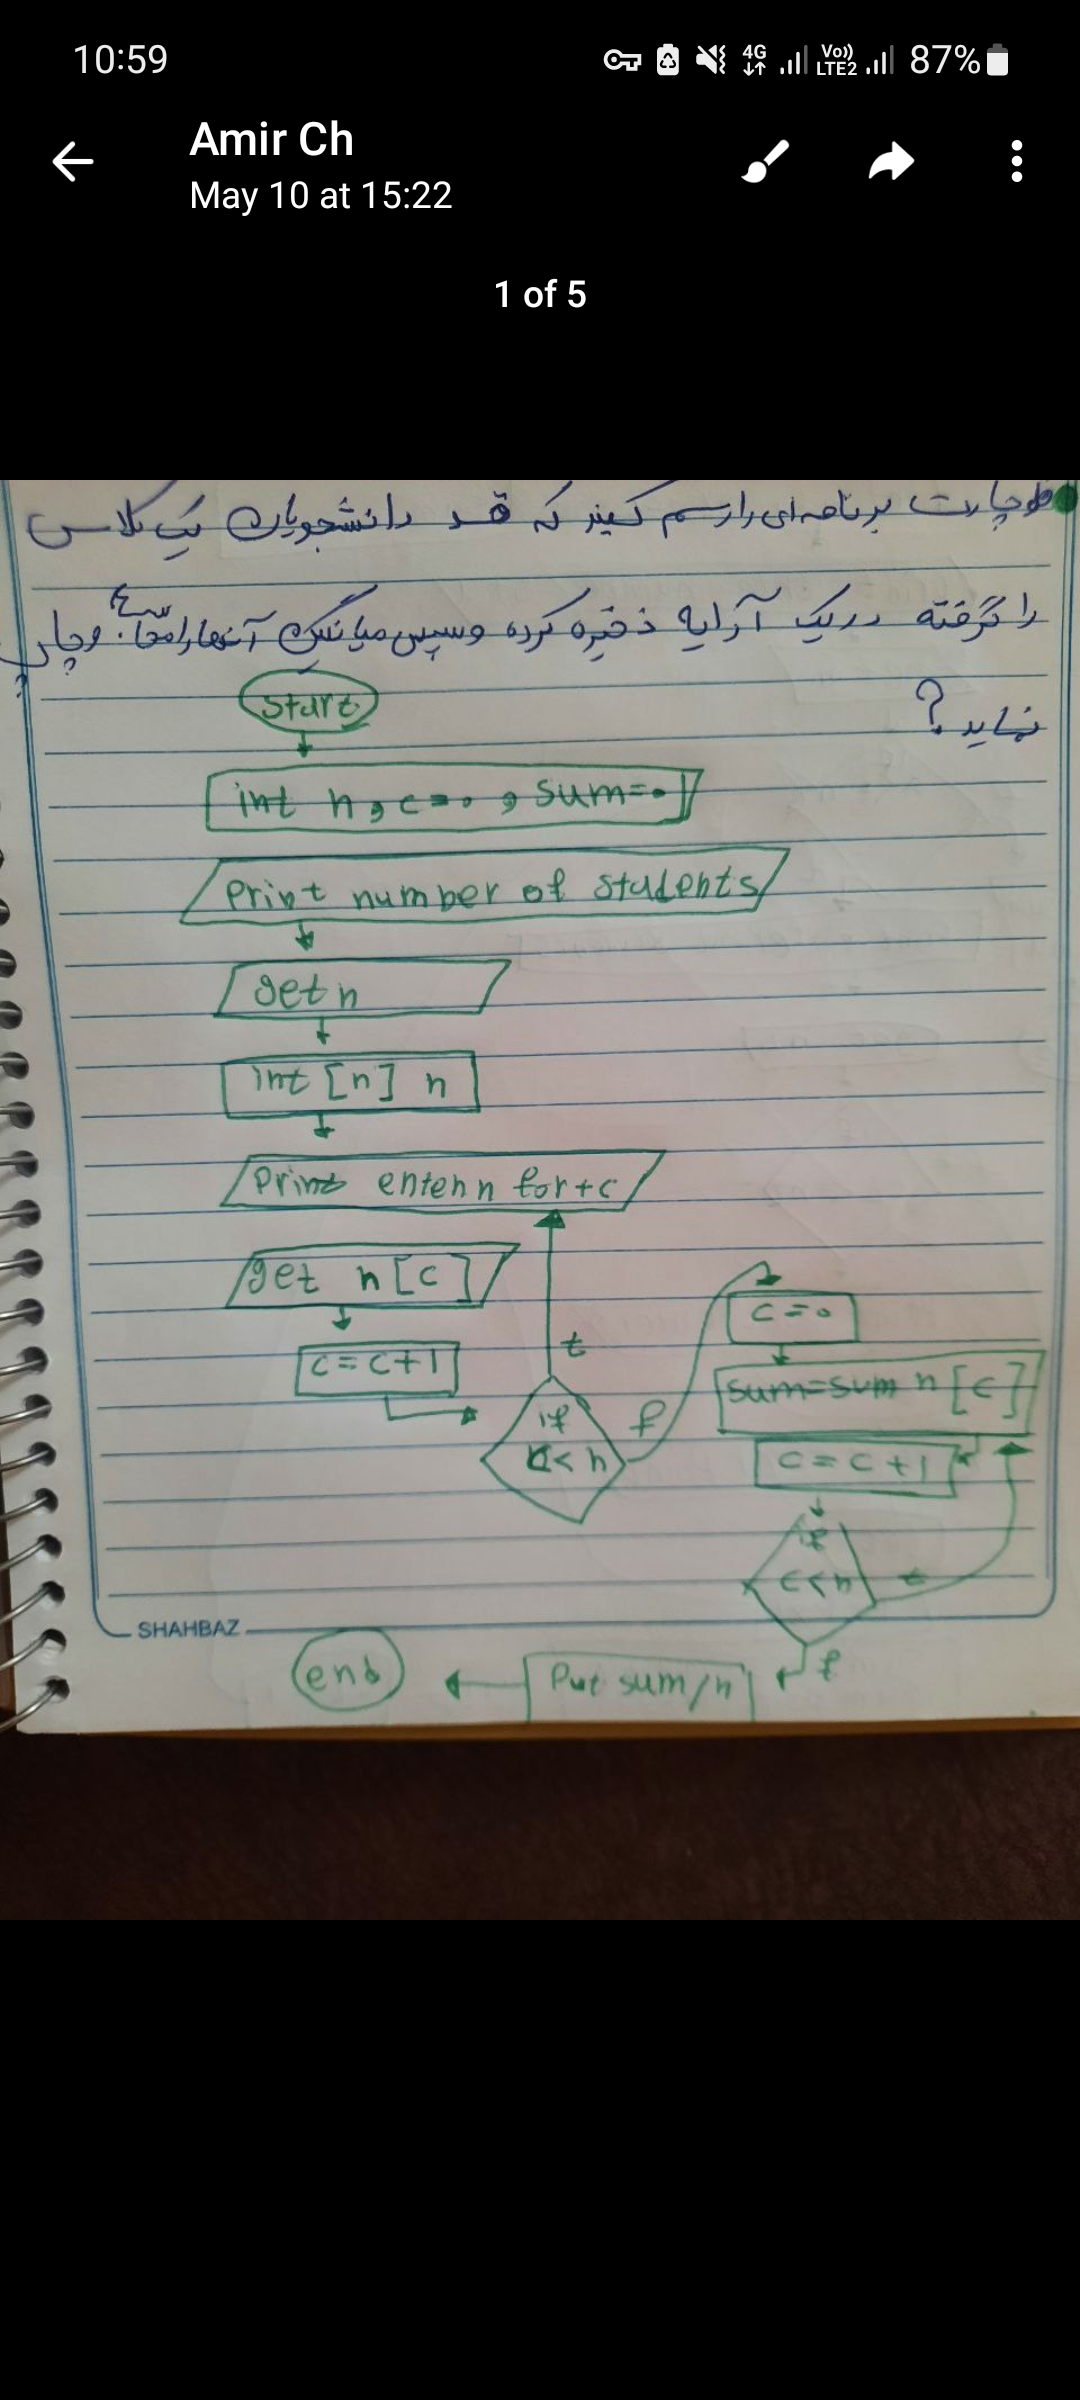 10:59
4G
Vo))
LTE2
87%
Amir Ch
May 10 at 15:22
1 of 5
فلوچارت برنامه‌ای را رسم کنید که قد دانشجویان یک کلاس
را گرفته در یک آرایه ذخیره کرده و سپس میانگین آنها را محاسبه و چاپ
نمایید ؟
start
int n, c=0, sum=0
print number of students
get n
int [n] n
print enter n for+c
get n[c]
c=c+1
if
c<n
t
f
c=0
sum=sum n[c]
c=c+1
if
c<n
t
f
Put sum/n
end
SHAHBAZ